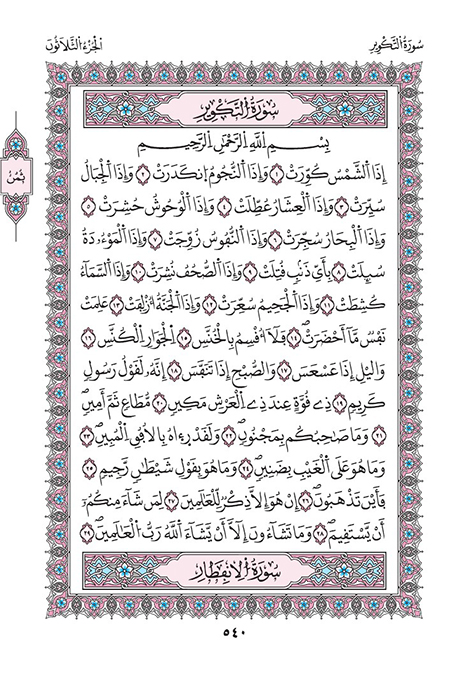 سُورَةُ التَّكْوِيرِ
الجُزْءُ الثَّلَاثُونَ
سُورَةُ التَّكْوِيرِ
ثُمُنٌ
بِسْمِ اللَّهِ الرَّحْمَٰنِ الرَّحِيمِ
إِذَا اَ۬لشَّمْسُ كُوِّرَتْ ١ وَإِذَا اَ۬لنُّجُومُ اُ۪نكَدَرَتْ ٢ وَإِذَا اَ۬لْجِبَالُ
سُيِّرَتْ ٣ وَإِذَا اَ۬لْعِشَارُ عُطِّلَتْ ٤ وَإِذَا اَ۬لْوُحُوشُ حُشِرَتْ ٥
وَإِذَا اَ۬لْبِحَارُ سُجِّرَتْ ٦ وَإِذَا اَ۬لنُّفُوسُ زُوِّجَتْ ٧ وَإِذَا اَ۬لْمَوْءُۥدَةُ
سُئِلَتْ ٨ بِأَيِّ ذَنۢبٍ قُتِلَتْ ٩ وَإِذَا اَ۬لصُّحُفُ نُشِرَتْ ١٠ وَإِذَا اَ۬لسَّمَآءُ
كُشِطَتْ ١١ وَإِذَا اَ۬لْجَحِيمُ سُعِّرَتْ ١٢ وَإِذَا اَ۬لْجَنَّةُ أُزْلِفَتْ ١٣ عَلِمَتْ
نَفْسٌ مَّآ أَحْضَرَتْ ١٤ فَلَآ أُقْسِمُ بِالْخُنَّسِ ١٥ اِ۬لْجَوَارِ اِ۬لْكُنَّسِ ١٦
وَاليْلِ إِذَا عَسْعَسَ ١٧ وَالصُّبْحِ إِذَا تَنَفَّسَ ١٨ إِنَّهُۥ لَقَوْلُ رَسُولٍ
كَرِيمٍ ١٩ ذِے قُوَّةٍ عِندَ ذِے اِ۬لْعَرْشِ مَكِينٍ ٢٠ مُّطَاعٍ ثَمَّ أَمِينٍ
٢١ وَمَا صَاحِبُكُم بِمَجْنُونٍ ٢٢ وَلَقَدْ رَءِاهُ بِالُافُقِ اِ۬لْمُبِينِ ٢٣
وَمَا هُوَ عَلَى اَ۬لْغَيْبِ بِضَنِينٍ ٢٤ وَمَا هُوَ بِقَوْلِ شَيْطَٰنٍ رَّجِيمٍ ٢٥
فَأَيْنَ تَذْهَبُونَ ٢٦ إِنْ هُوَ إِلَّا ذِكْرٌ لِّلْعَٰلَمِينَ ٢٧ لِمَن شَآءَ مِنكُمُۥٓ
أَنْ يَّسْتَقِيمَ ٢٨ وَمَا تَشَآءُونَ إِلَّآ أَنْ يَّشَآءَ اَ۬للَّهُ رَبُّ اُ۬لْعَٰلَمِينَ ٢٩
سُورَةُ الِانفِطَارِ
٥٤٠